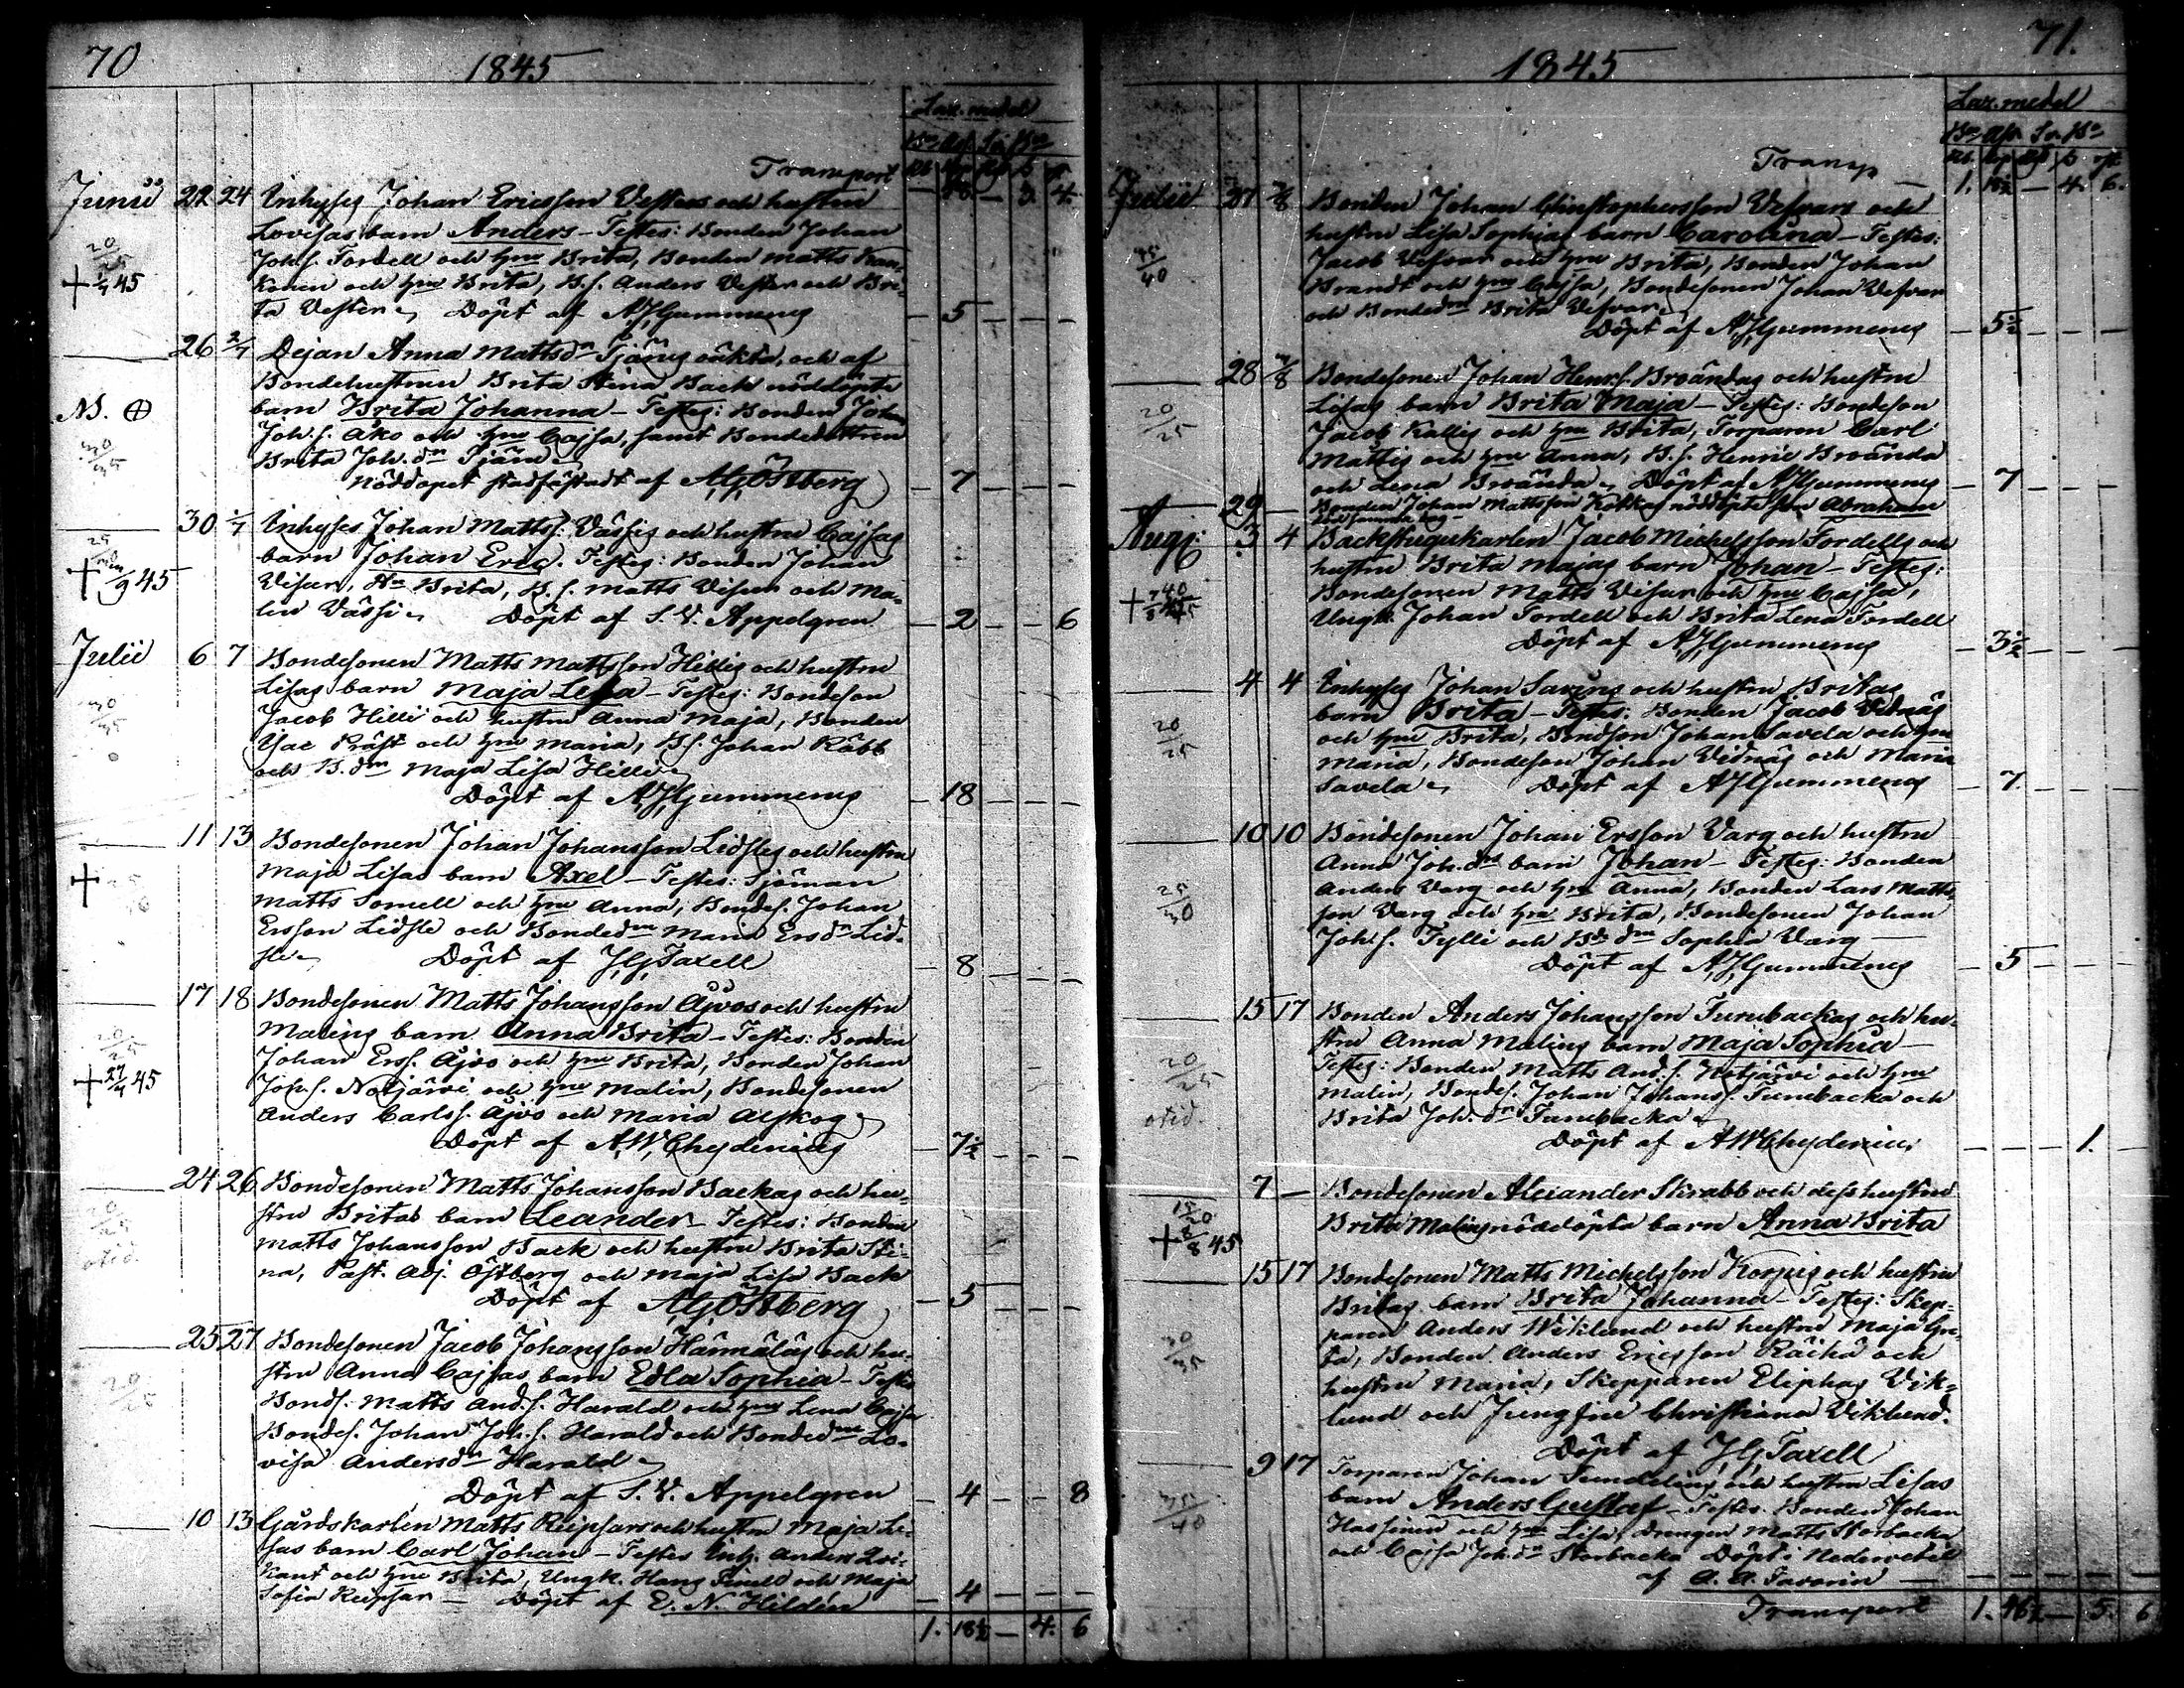 70
1845
Laz. medel
Transport
Junii 22 24 Inhyses Johan Ericsson Vesters och hustru — 18. — 3. 4.
20/25 Lovisas barn Anders — Testes: Bonden Johan
Joh.s. Fordell och hru Brita, Bonden Matts Kan-
+ 1/7 45 konen och hru Brita, B.s. Anders Vester och Bri-
ta Vester. Döpt af AJGummerus — 5 — — —
26 2/7 Dejan Anna Mattsdr Tjärus oäkta, och af
Bondehustrun Brita Stina Back nöddöpta
NB. barn Brita Johanna — Testes: Bonden Johan
30/35 Joh.s. Åko och hru Cajsa, samt Bondedottren
Brita Joh.dr Tjäru
Nöddopet stadfästadt af AGÖstberg — 7 — — —
30 1/7 Inhyses Johan Matts.s. Vässis och hustru Cajsas
25 barn Johan Eric. Testes: Bonden Johan
+ /9 45 Visur, Hu Brita, B.s. Matts Visur och Ma-
lin Vässi. Döpt af S. V. Appelgren — 2 — — 6
Julii 6 7 Bondesonen Matts Mattsson Hillis och hustru
Lisas barn Maja Lisa — Testes: Bondeson
30/35 Jacob Hilli och hustru Anna Maja, Bonden
Isac Präst och hru Maria, B.s. Johan Räbb
och B.dr Maja Lisa Hilli
Döpt af AJGummerus — 18 — — —
11 13 Bondesonen Johan Johansson Lidstes och hustru
+ Maja Lisas barn Axel — Testes: Sjöman
Matts Sorvell och hru Anna, Bondes. Johan
Ersson Lidste och Bondedr Maria Ersdr Lid-
ste. Döpt af JGTaxell — 8 — — —
17 18 Bondesonen Matts Johansson Åjvos och hustru
20/25 Malins barn Anna Brita — Testes: Bonden
Johan Ers.s. Åjvo och hru Brita, Bonden Johan
+ 27/7 45 Joh.s. Notjärvi och hru Malin, Bondesonen
Anders Carls.s. Åjvo och Maria Alskog
Döpt af AWChydenius — 7½ — — —
24 26 Bondesonen Matts Johansson Backas och hu-
20/25 stru Britas barn Leander — Testes: Bonden
Matts Johansson Back och hustru Brita Sti-
otid. na, Past. Adj. Östberg och Maja Lisa Back
Döpt af AGÖstberg — 5 — — —
25 27 Bondesonen Jacob Johansson Hännäläs och hu-
20/25 stru Anna Cajsas barn Edla Sophia — Testes
Bonds. Matts And.s. Harald och hru Lena Cajsa
Bondes. Johan Joh.s. Harald och Bondedr Lo-
visa Andersdr Harald
Döpt af S. V. Appelgren — 4 — — 8
10 13 Gårdskarlen Matts Reipsars och hustru Maja Li-
sas barn Carl Johan — Testes Inh. Anders Qvi-
kant och hru Brita, Ungk. Hans och Maja
Sofia Reipsar — Döpt af E. N. Hildén — 4 — — —
1. 18½ — 4. 6
71.
1845
Laz. medel
Transp — 1. 18½ — 4. 6.
Julii 27 Bonden Johan Christophersson Vesvars och
45/40 hustru Lisa Sophias barn Carolina — Testes:
Jacob Vesvar och hru Brita, Bonden Johan
Brandt och hru Cajsa, Bondesonen Johan Vesvar
och Bondedr Brita Vesvar
Döpt af AJGummerus — 5½ — — —
28 Bondesonen Johan Henr.s. Broändas och hustru
20/25 Lisas barn Brita Maja — Testes: Bondeson
Jacob Kallis och hru Brita, Torparen Carl
Mattis och hru Anna, B.s. Henric Broända
och Lena Broända. Döpt af AJGummerus — 7 — — —
29 — Bonden Johan Mattsson Kotkas nöddöpte son Abraham
Aug: 3 4 Backstugukarlen Jacob Michelsson Fordells och
hustru Brita Majas barn Johan — Testes:
Bondesonen Matts Visur och hru Cajsa,
Ungk. Johan Fordell och Brita Lena Fordell
Döpt af AJGummerus — 3½ — — —
4 4 Inhyses Johan Savéns och hustru Britas
20/25 barn Brita — Testes: Bonden Jacob Vidnäs
och hru Brita, Bondson Johan Savela och hru
Maria, Bondeson Johan Vidnäs och Maria
Savela. Döpt af AJGummerus — 7. — — —
10 10 Bondesonen Johan Ersson Varg och hustru
25/30 Anna Joh.drs barn Johan — Testes: Bonden
Anders Varg och hru Anna, Bonden Lars Matts-
son Varg och hru Brita, Bondesonen Johan
Joh.s. Tylli och Bde dr Sophia Varg —
Döpt af AJGummerus — 5 — — —
15 17 Bonden Anders Johansson Furubackas och hu-
20/25 stru Anna Malins barn Maja Sophia —
Testes: Bonden Matts And.s. Notjärvi och hru
otid. Malin, Bondes. Johan Johans.s. Furubacka och
Brita Joh.dr Furubacka
Döpt af AWChydenius — — — 1. —
7 — Bondesonen Alexander Skrabb och dess hustru
15/20 + 8/8 45 Brita Malins nöddöpta barn Anna Brita
15 17 Bondesonen Matts Michelsson Korpis och hustru
30/35 Britas barn Brita Johanna — Testes: Skep-
paren Anders Wiklund och hustru Maja Gre-
ta, Bonden Anders Ericsson Räihä och
hustru Maria, Skepparen Eliphas Vik-
lund och Jungfru Christiana Viklund.
Döpt af JGTaxell
9 17 Torparen Johan Sundelins och hustru Lisas
35/40 barn Anders Gustaf — Testes Bonden Johan
Hassinen och hru Lisa, Drengen Matts Storbacka
och Cajsa Joh.dr Storbacka Döpt i Nedervetil
af A. A. Favorin — — — — —
Transport 1. 46½ — 5. 6